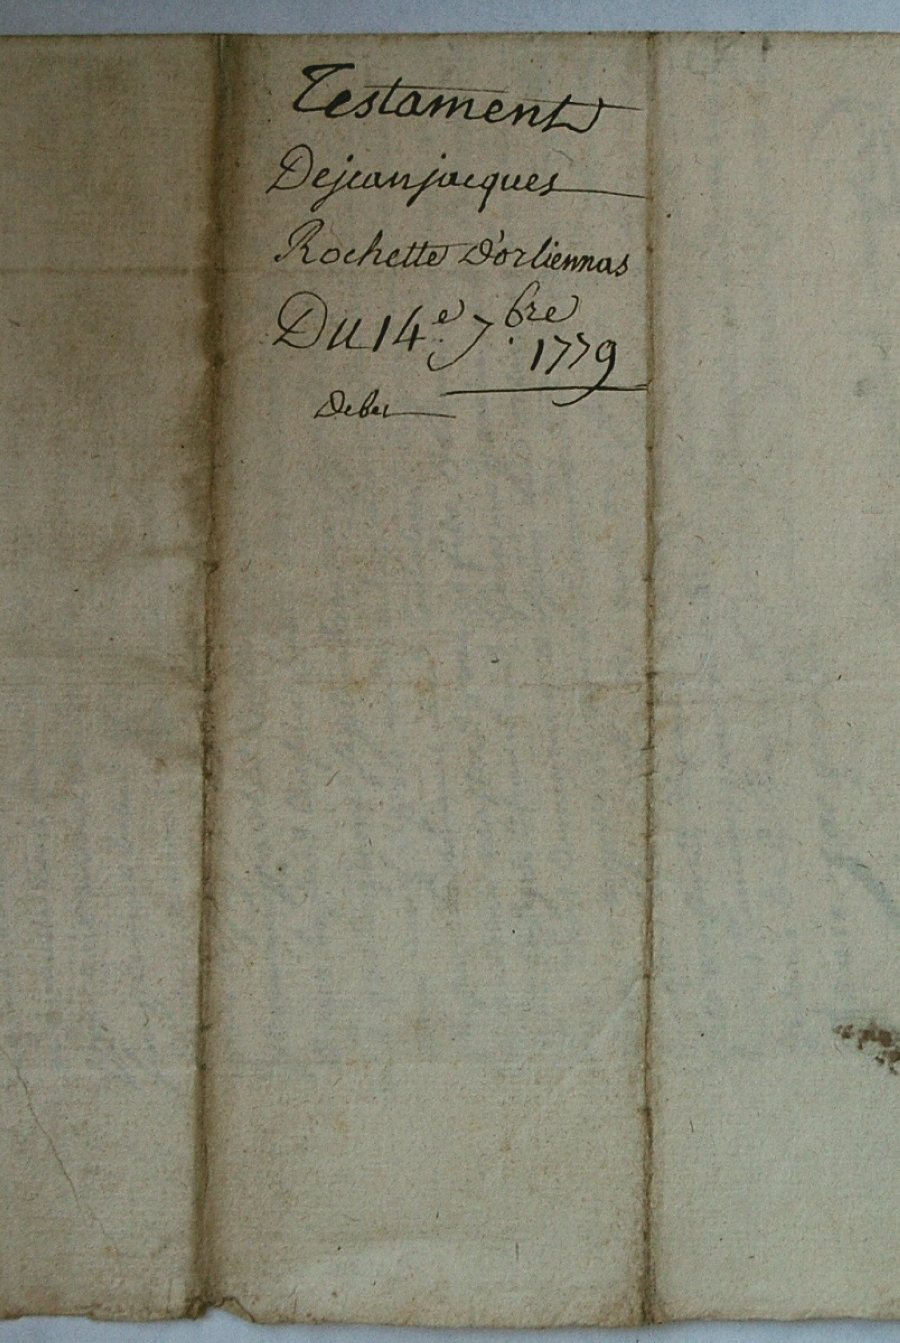 Testament
Dejeanjacques
Rochette d'orliennas
Du 14e. 7.bre
1779